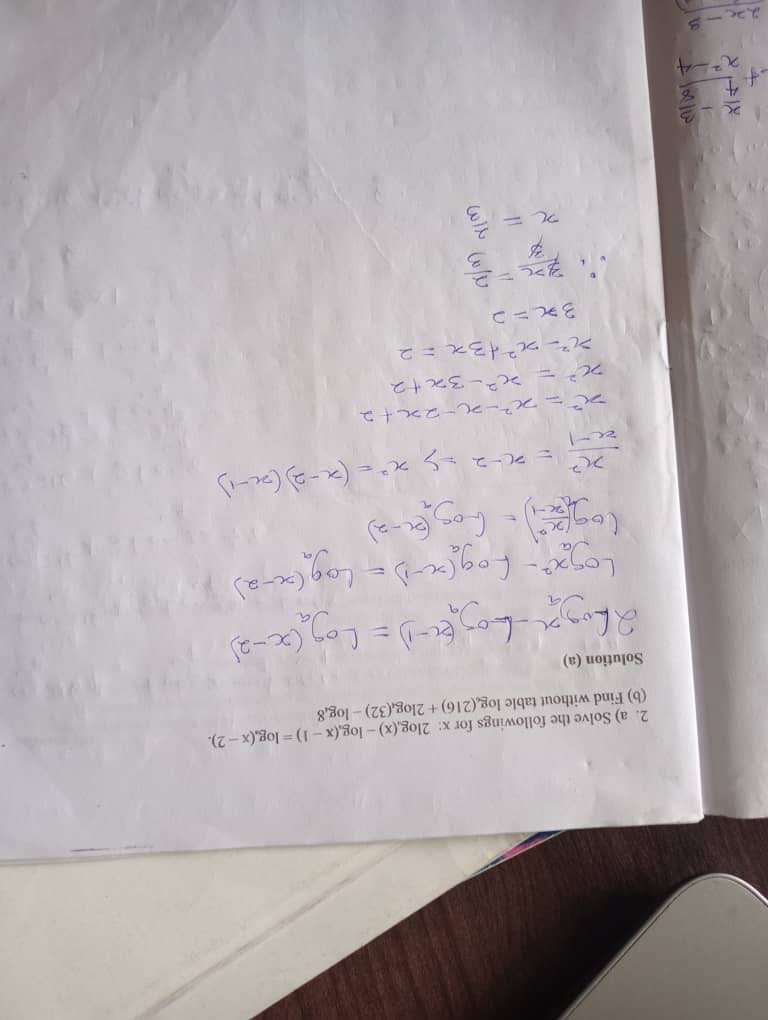 2. a) Solve the followings for x: 2logₐ(x) – logₐ(x – 1) = logₐ(x – 2).
(b) Find without table log (216) + 2log (32) – log 8
Solution (a)
2Logₐx - Logₐ(x-1) = Logₐ(x-2)
Logₐx² - Logₐ(x-1) = Logₐ(x-2)
Logₐ(x²/x-1) = Logₐ(x-2)
x²/x-1 = x-2 => x² = (x-2)(x-1)
x² = x²-x-2x+2
x² = x²-3x+2
x²-x²+3x = 2
3x = 2
∴ 3x/3 = 2/3
x = 2/3
x/4 - 3/8
+
x²-4
2x-3